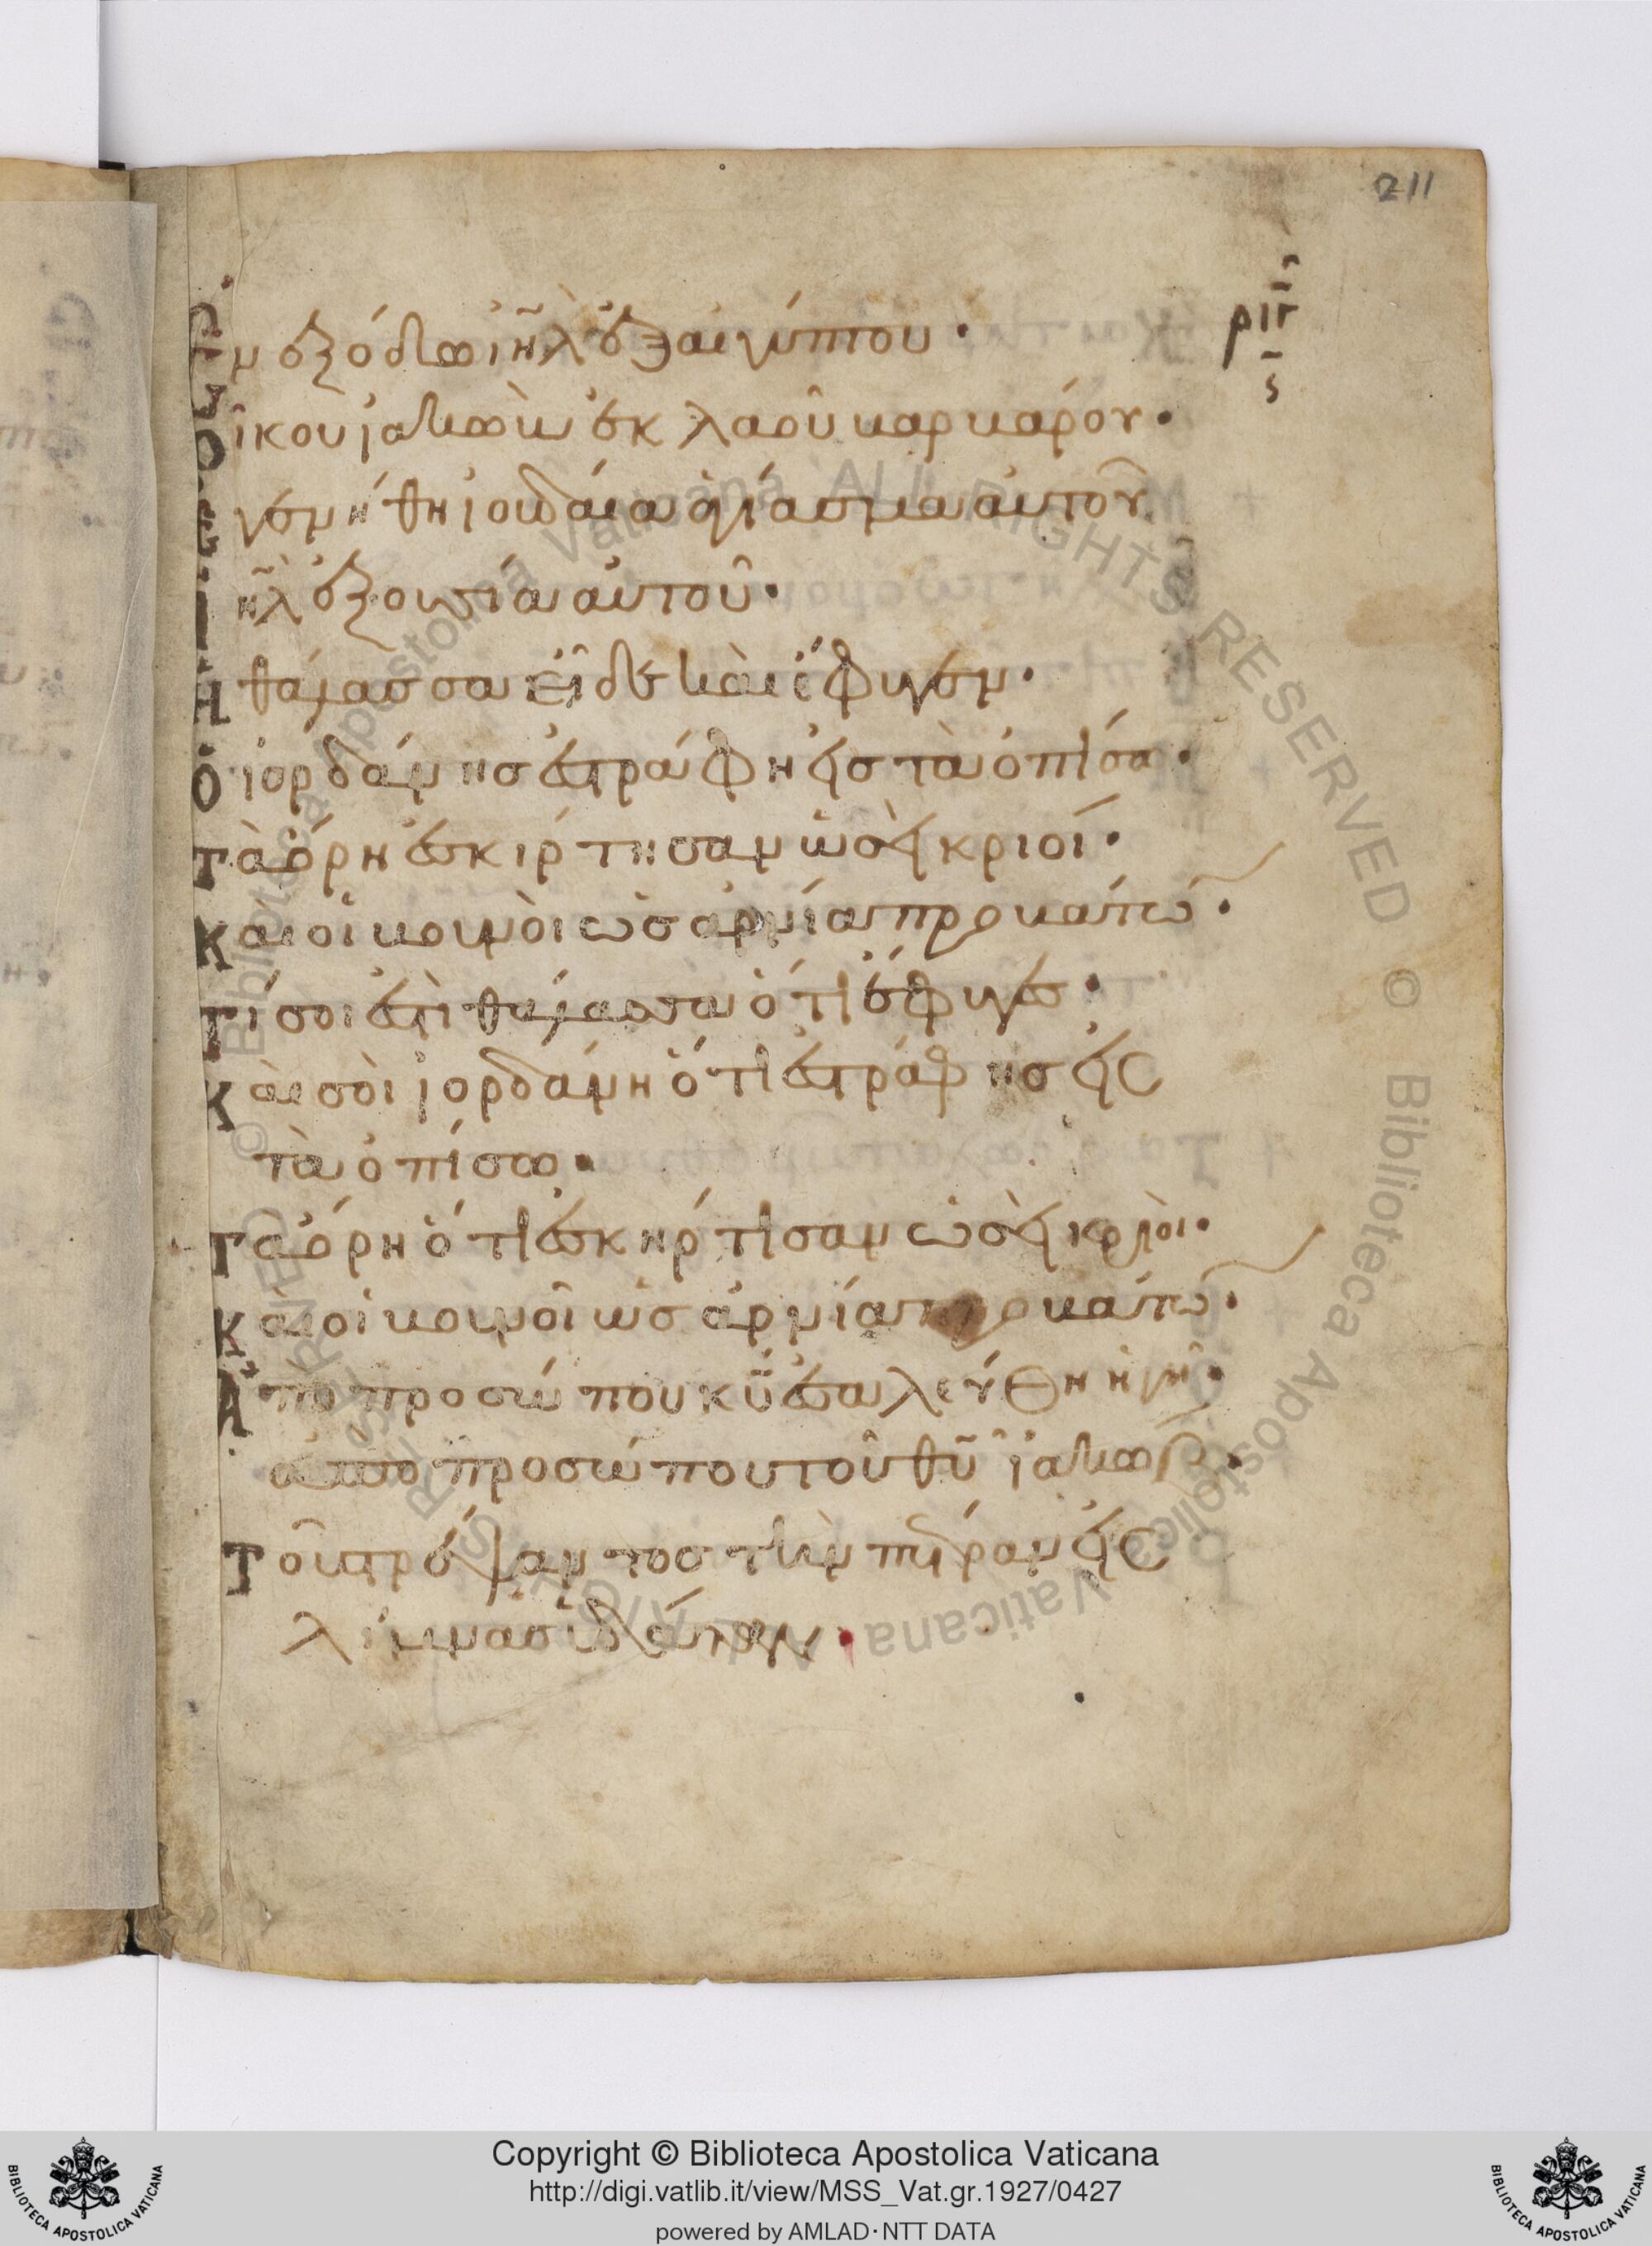 211
ριγ
ς
Ἐν ἐξόδω ιηλ ἐξ αιγύπτου·
οἴκου ἰακὼβ ἐκ λαοῦ βαρβάρου·
Ἐγενήθη ἰουδαία ἁγίασμα αὐτοῦ
ιηλ ἐξουσία αὐτοῦ·
Η θάλασσα εἶδε καὶ ἔφυγεν·
Ὁ ἰορδάνησ ἐστράφη εἰσ τὰ ὀπίσω·
Τὰ ὄρη ἐσκίρτησαν ὡσεὶ κριοί·
Καὶ οἱ βουνοὶ ὡσ ἀρνία προβάτων·
Τί σοι ἐστὶ θάλασσα ὅτι ἔφυγεσ·
Καὶ σοὶ ἰορδάνη ὅτι ἐστράφησ εἰσ
τὰ ὀπίσω·
Τὰ ὄρη ὅτι ἐσκηρτίσαν ὡσεὶ κριοὶ·
Καὶ οἱ βουνοὶ ὡσ ἀρνία προβάτων·
Ἀπὸ προσώπου κυ ἐσαλεύθη ἡ γῆ·
ἀπὸ προσώπου τοῦ θυ ἰακώβ·
Τοῦ τρέψαντοσ τὴν πέτραν εἰσ
λίμνασ ὑδάτων·
Copyright © Biblioteca Apostolica Vaticana
http://digi.vatlib.it/view/MSS_Vat.gr.1927/0427
powered by AMLAD·NTT DATA
BIBLIOTECA APOSTOLICA VATICANA
BIBLIOTECA APOSTOLICA VATICANA